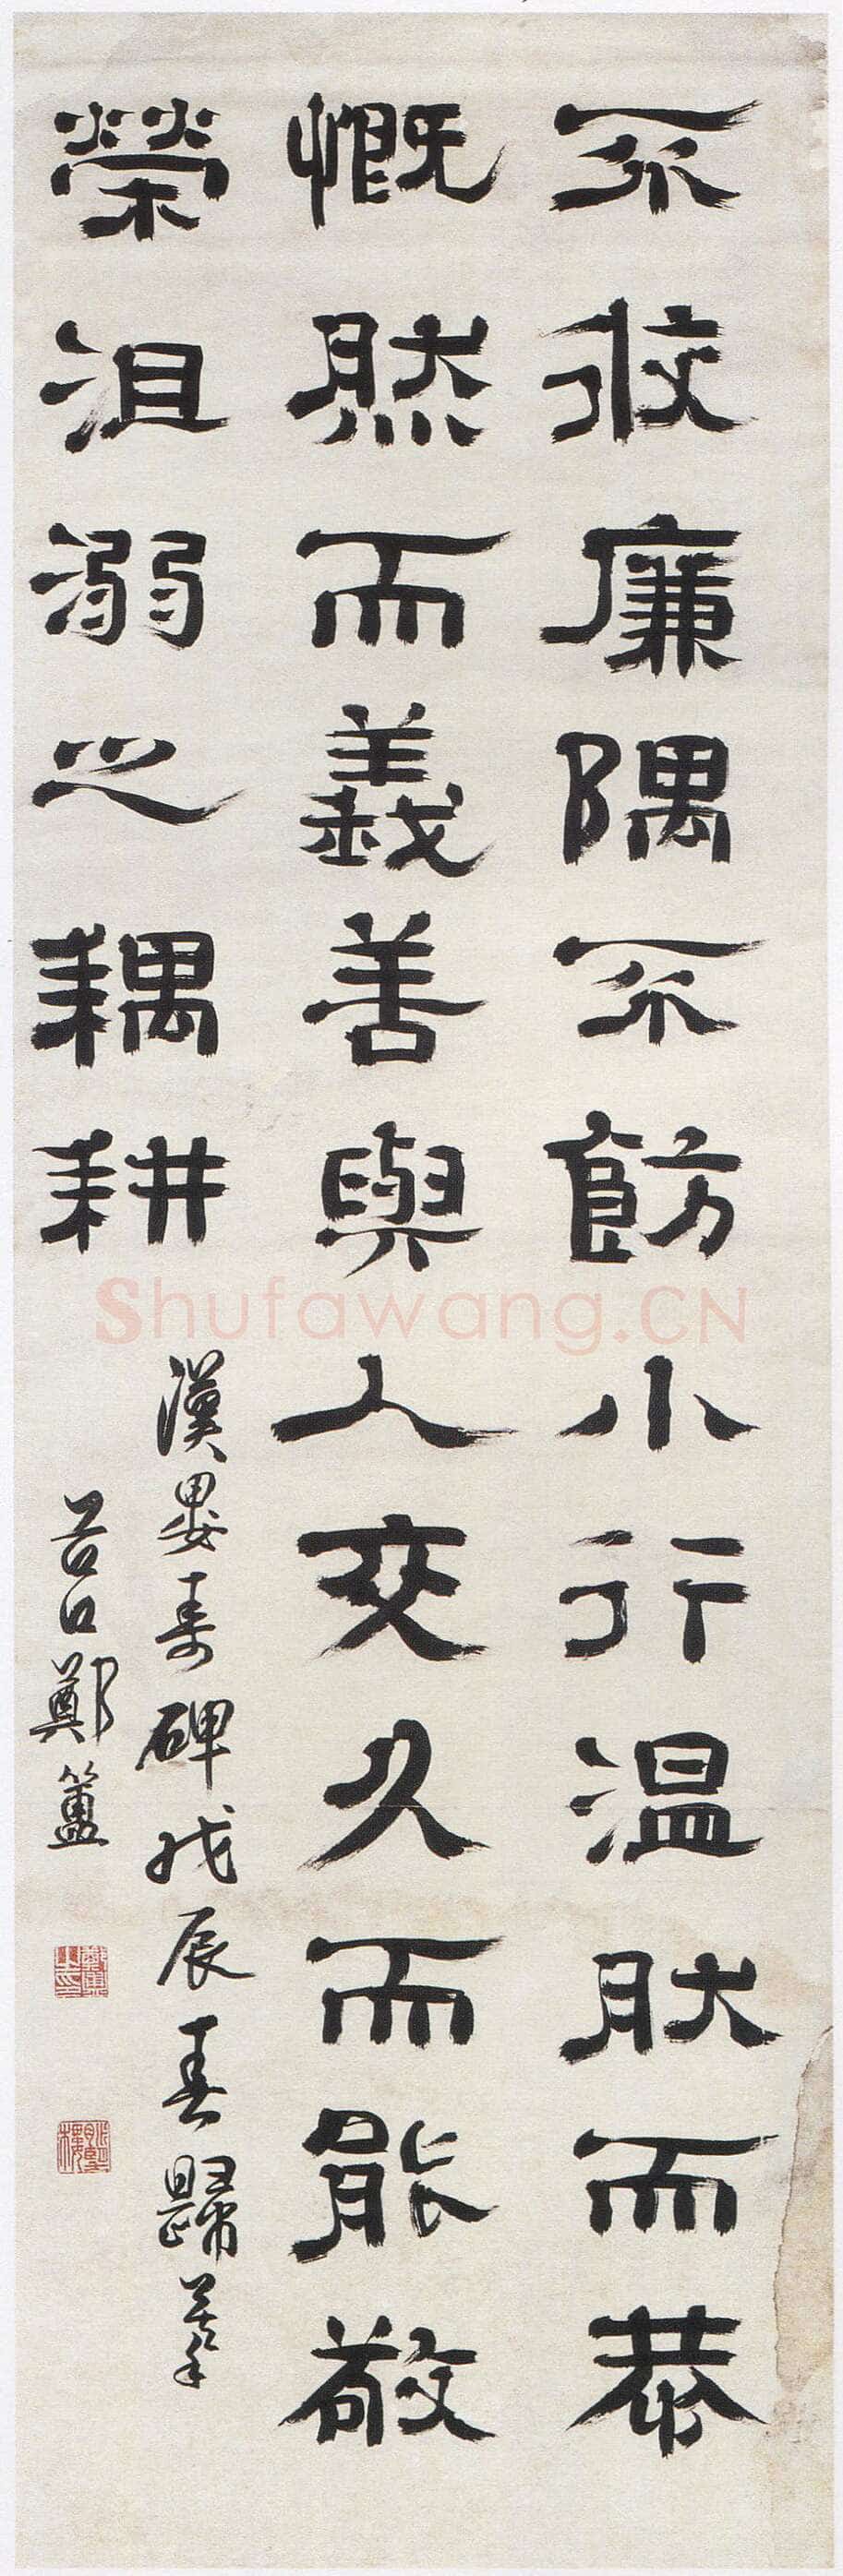 不攸廉隅不飭小行温肰而恭
慨然而義善與人交久而能敬
榮沮溺之耦耕
漢婁壽碑戊辰春歸摹
谷口鄭簠
Shufawang.CN